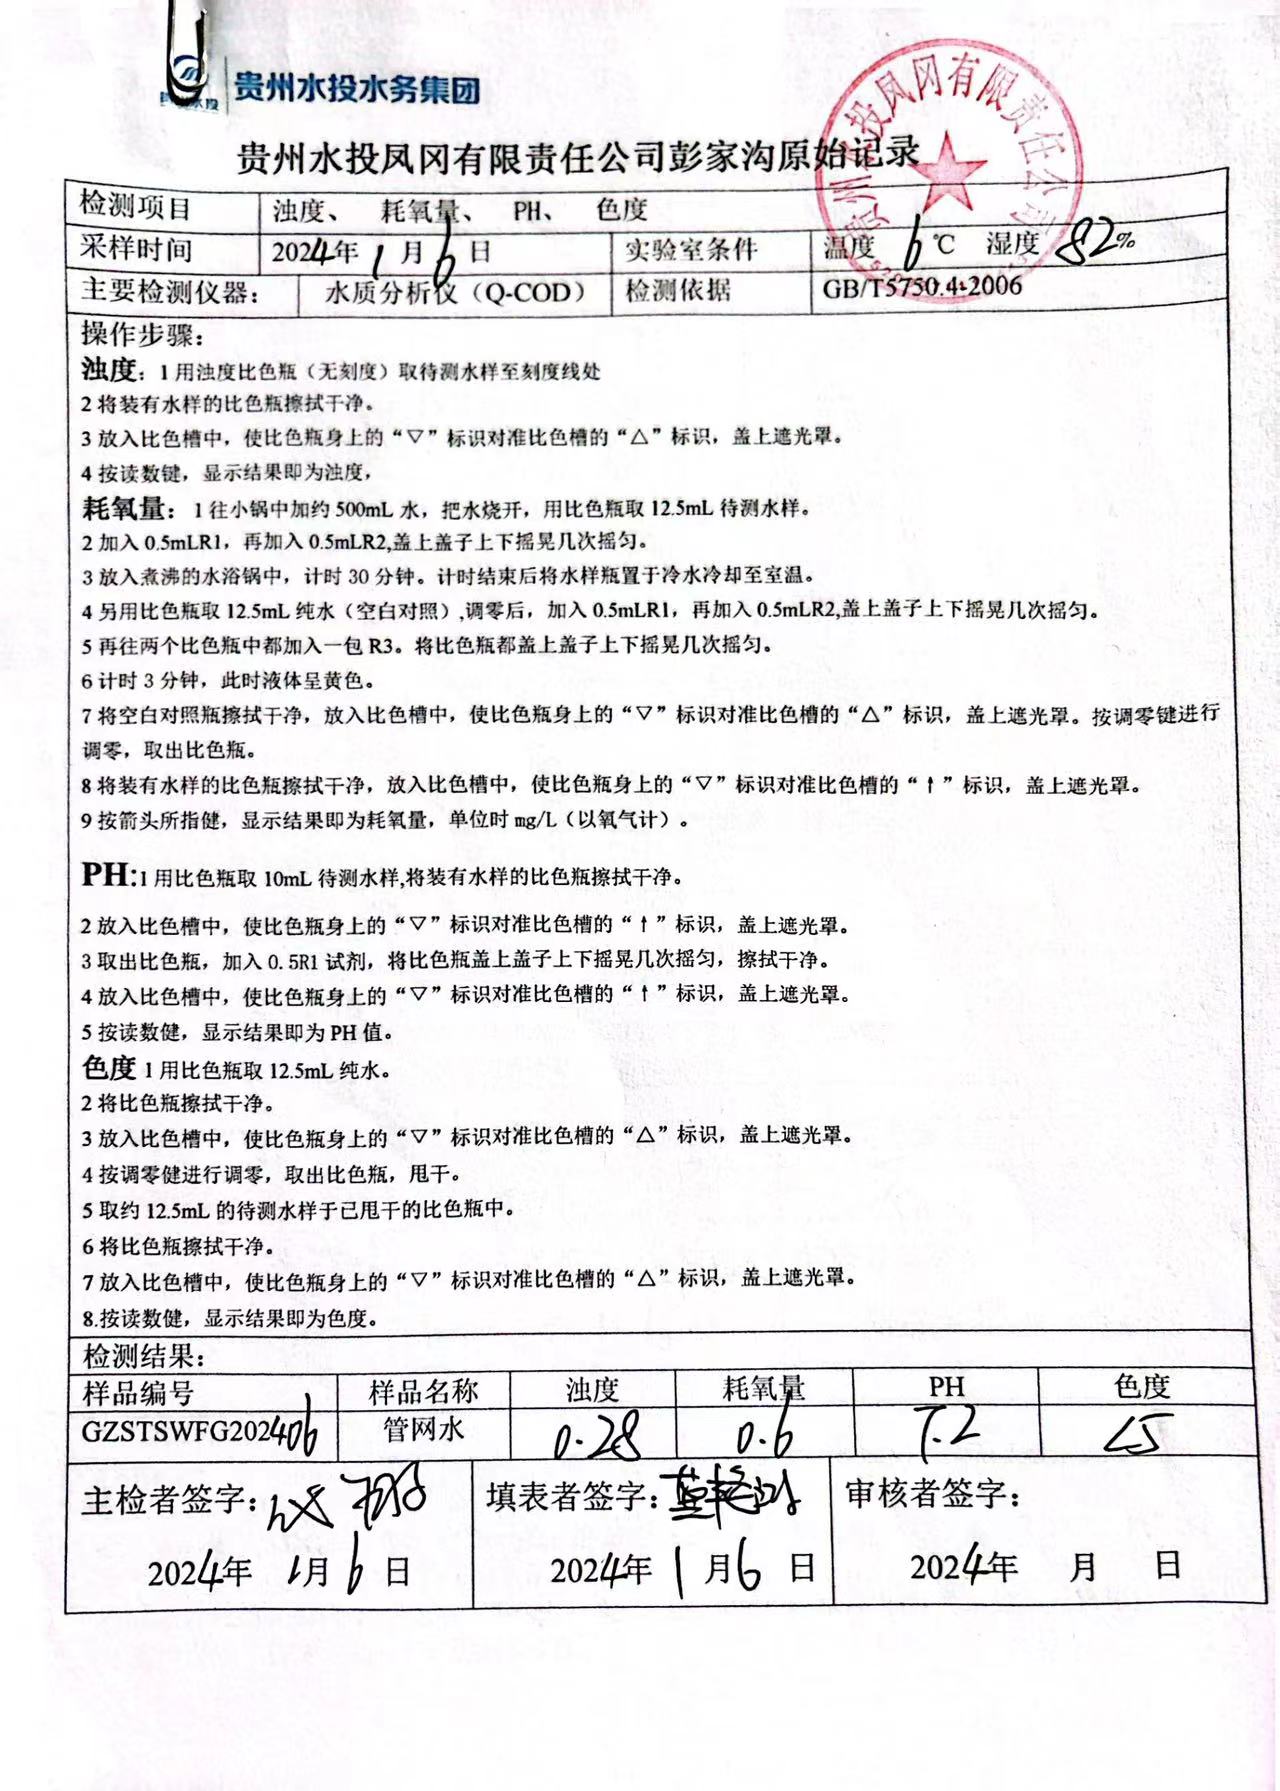 贵州水投水务集团
贵州水投凤冈有限责任公司
贵州水投凤冈有限责任公司彭家沟原始记录
检测项目 浊度、 耗氧量、 PH、 色度
采样时间 2024年1月6日 实验室条件 温度 6℃ 湿度 82%
主要检测仪器： 水质分析仪（Q-COD） 检测依据 GB/T5750.4-2006
操作步骤：
浊度：1 用浊度比色瓶（无刻度）取待测水样至刻度线处
2 将装有水样的比色瓶擦拭干净。
3 放入比色槽中，使比色瓶身上的“▽”标识对准比色槽的“△”标识，盖上遮光罩。
4 按读数键，显示结果即为浊度，
耗氧量：1 往小锅中加约 500mL 水，把水烧开，用比色瓶取 12.5mL 待测水样。
2 加入 0.5mLR1，再加入 0.5mLR2,盖上盖子上下摇晃几次摇匀。
3 放入煮沸的水浴锅中，计时 30 分钟。计时结束后将水样瓶置于冷水冷却至室温。
4 另用比色瓶取 12.5mL 纯水（空白对照）,调零后，加入 0.5mLR1，再加入 0.5mLR2,盖上盖子上下摇晃几次摇匀。
5 再往两个比色瓶中都加入一包 R3。将比色瓶都盖上盖子上下摇晃几次摇匀。
6 计时 3 分钟，此时液体呈黄色。
7 将空白对照瓶擦拭干净，放入比色槽中，使比色瓶身上的“▽”标识对准比色槽的“△”标识，盖上遮光罩。按调零键进行
调零，取出比色瓶。
8 将装有水样的比色瓶擦拭干净，放入比色槽中，使比色瓶身上的“▽”标识对准比色槽的“↑”标识，盖上遮光罩。
9 按箭头所指健，显示结果即为耗氧量，单位时 mg/L（以氧气计）。
PH:1 用比色瓶取 10mL 待测水样,将装有水样的比色瓶擦拭干净。
2 放入比色槽中，使比色瓶身上的“▽”标识对准比色槽的“↑”标识，盖上遮光罩。
3 取出比色瓶，加入 0.5R1 试剂，将比色瓶盖上盖子上下摇晃几次摇匀，擦拭干净。
4 放入比色槽中，使比色瓶身上的“▽”标识对准比色槽的“↑”标识，盖上遮光罩。
5 按读数健，显示结果即为 PH 值。
色度 1 用比色瓶取 12.5mL 纯水。
2 将比色瓶擦拭干净。
3 放入比色槽中，使比色瓶身上的“▽”标识对准比色槽的“△”标识，盖上遮光罩。
4 按调零健进行调零，取出比色瓶，甩干。
5 取约 12.5mL 的待测水样于已甩干的比色瓶中。
6 将比色瓶擦拭干净。
7 放入比色槽中，使比色瓶身上的“▽”标识对准比色槽的“△”标识，盖上遮光罩。
8.按读数健，显示结果即为色度。
检测结果：
样品编号 样品名称 浊度 耗氧量 PH 色度
GZSTSWFG202406 管网水 0.28 0.6 7.2 <5
主检者签字： 填表者签字： 审核者签字：
2024年 1月 6日 2024年 1月 6日 2024年 月 日